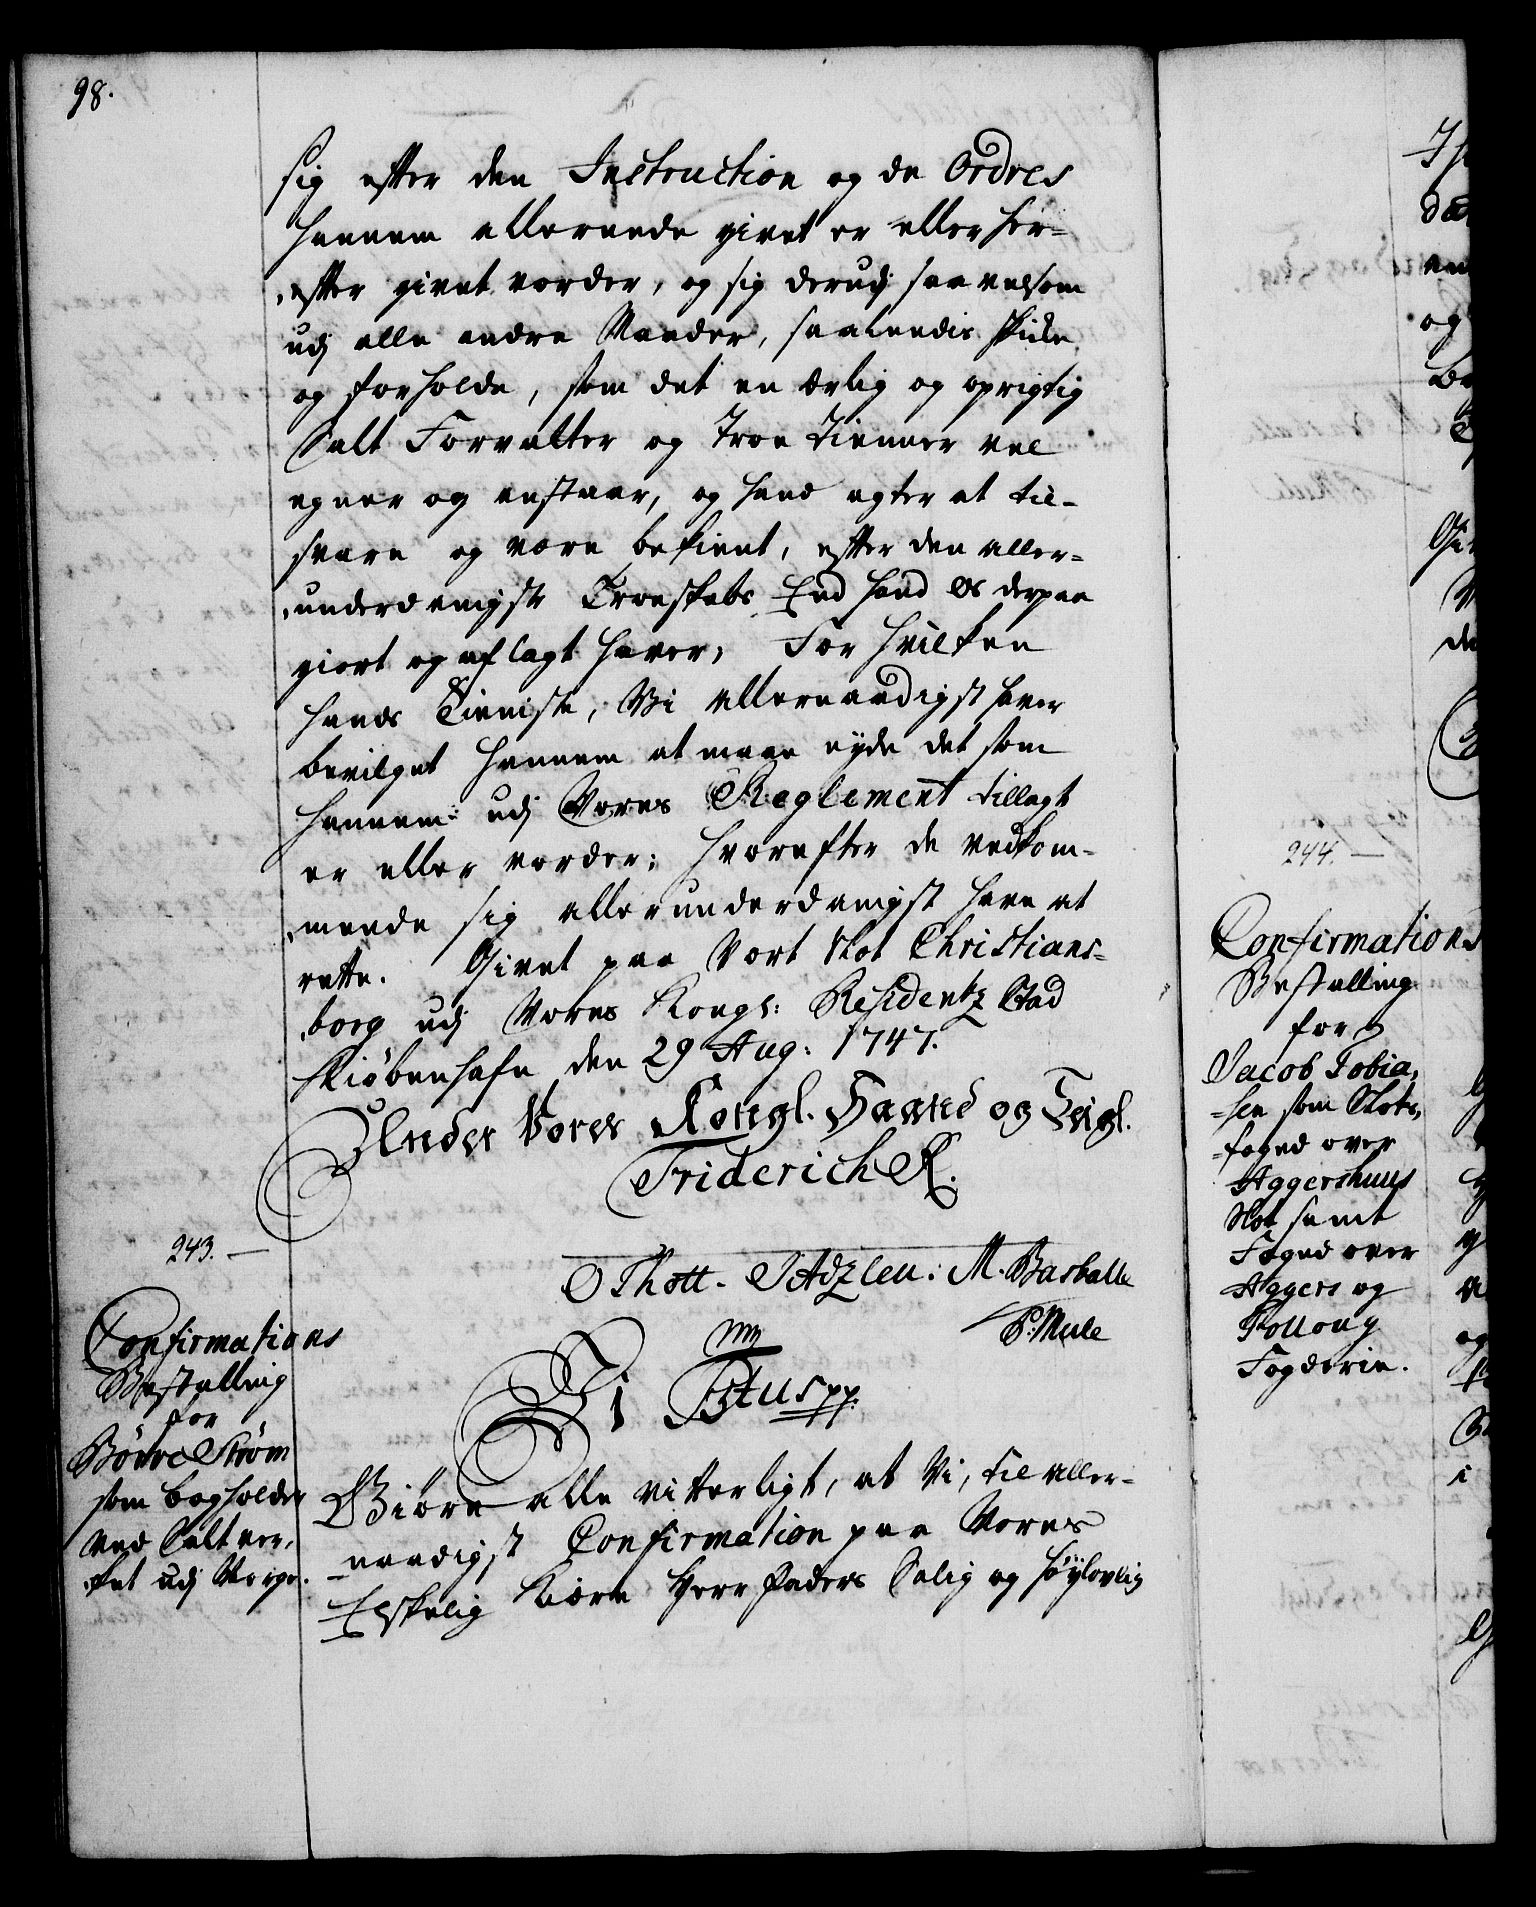 98.
sig efter den Instruction og de Ordres
hannem allereede givet er eller her-
efter givet vorder, og sig derudj saavelsom
udj alle andre Maader, saaledis skicke
og forholde, som det en ærlig og oprigtig
Salt Forvalter og Troe Tienner vel
egner og anstaar, og hand agter at til-
svare og være bekient, efter den aller-
underdanigste Troeskabs Eed hand os derpaa
giort og aflagt haver; For hvilken
hands Tieniste, Vi allernaadigst haver
bevilget hannem at maae nyde det som
hannem udj Vores Reglement tillagt
er eller vorder; hvorefter de vedkom-
mende sig allerunderdanigst have at
rette. Givet paa Vort Slot Christians-
borg udj Vores Kongl: Residentz Stad
Kiøbenhafn den 29 Aug: 1747.
Under Vores Kongl. Haand og Seigl.
Friderich R.
O Thott. J Adzleu. M. Barballe
P. Mule
243.
Confirmations
Bestalling
for
Børre Strøm
som bogholder
ved Saltver-
ket udj Norge.
Vi F5tus pp.
Giøre alle vitterligt, at Vi, til aller-
naadigst Confirmation paa Vores
Elskelig Kiære Herr Faders Salig og høylovlig
244.
Confirmations
Bestalling
for
Jacob Tobia-
sen som Slots-
foged over
Aggershuus
Slot samt
Foged over
Aggers og
Follong
Fogderie.